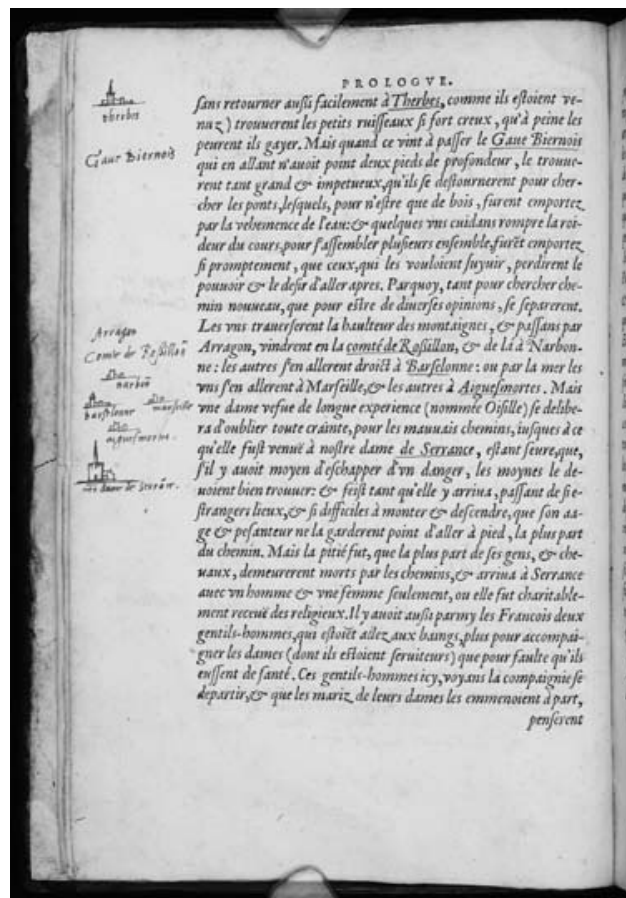 PROLOGVE.
sans retourner aussi facilement à Therbes, comme ils estoient ve-
nuz) trouuerent les petits ruisseaux si fort creux, qu'à peine les
peurent ils gayer. Mais quand ce vint à passer le Gaue Biernois
qui en allant n'auoit point deux pieds de profondeur, le trouue-
rent tant grand & impetueux, qu'ils se destournerent pour cher-
cher les ponts, lesquels, pour n'estre que de bois, furent emportez
par la vehemence de l'eau: & quelques vns cuidans rompre la roi-
deur du cours, pour s'assembler plusieurs ensemble, furēt emportez
si promptement, que ceux, qui les vouloient suyuir, perdirent le
pouuoir & le desir d'aller apres. Parquoy, tant pour chercher che-
min nouueau, que pour estre de diuerses opinions, se separerent.
Les vns trauerserent la haulteur des montaignes, & passans par
Arragon, vindrent en la comté de Rosillon, & de là à Narbon-
ne: les autres s'en allerent droict à Barselonne: ou par la mer les
vns s'en allerent à Marseille, & les autres à Aiguesmortes. Mais
vne dame vefue de longue experience (nommée Oisille) se delibe-
ra d'oublier toute crainte, pour les mauuais chemins, iusques à ce
qu'elle fust venuë à nostre dame de Serrance, estant seure, que,
s'il y auoit moyen d'eschapper d'vn danger, les moynes le de-
uoient bien trouuer: & feist tant qu'elle y arriua, passant de si e-
strangers lieux, & si difficiles à monter & descendre, que son aa-
ge & pesanteur ne la garderent point d'aller à pied, la plus part
du chemin. Mais la pitié fut, que la plus part de ses gens, & che-
uaux, demeurerent morts par les chemins, & arriua à Serrance
auec vn homme & vne femme seulement, ou elle fut charitable-
ment receuë des religieux. Il y auoit aussi parmy les Francois deux
gentils-hommes, qui estoiēt allez aux baings, plus pour accompai-
gner les dames (dont ils estoient seruiteurs) que pour faulte qu'ils
eussent de santé. Ces gentils-hommes icy, voyans la compaignie se
departir, & que les mariz de leurs dames les emmenoient à part,
penserent
therbes
Gaue Biernois
Arragon
Comte de Rosillon
narbon
barselonne
marseille
aiguesmortes.